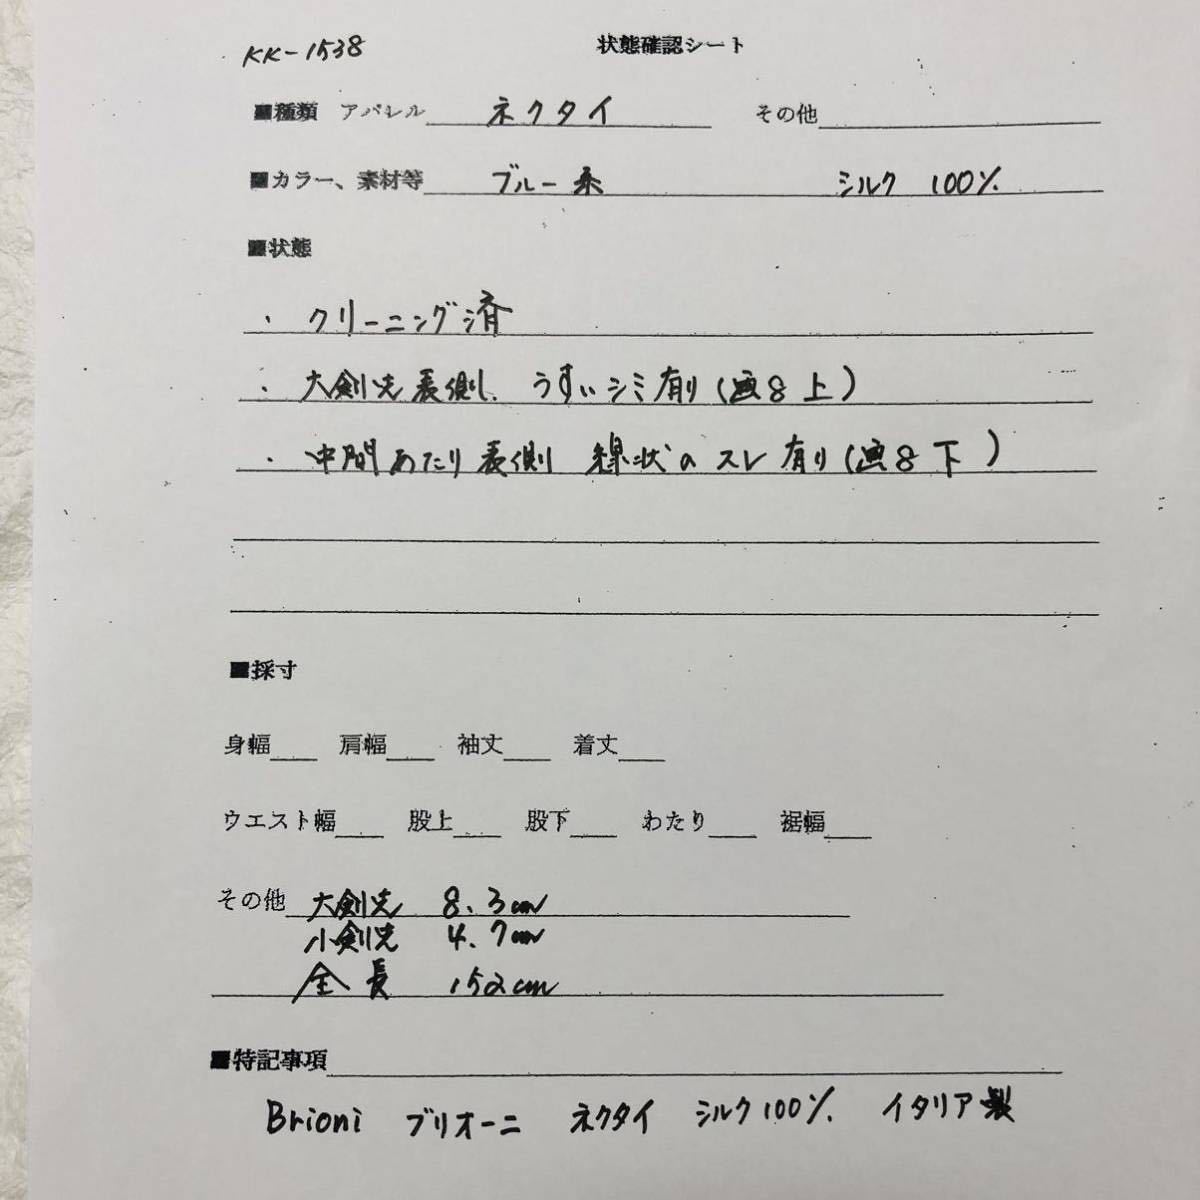 KK-1538 状態確認シート
■種類 アパレル ネクタイ その他
■カラー、素材等 ブルー系 シルク 100%
■状態
・クリーニング済
・大剣先表側、うすいシミ有り(画8上)
・中間あたり表側 線状のスレ有り(画8下)
■採寸
身幅 肩幅 袖丈 着丈
ウエスト幅 股上 股下 わたり 裾幅
その他 大剣先 8.3cm
小剣先 4.7cm
全長 152cm
■特記事項
Brioni ブリオーニ ネクタイ シルク100% イタリア製